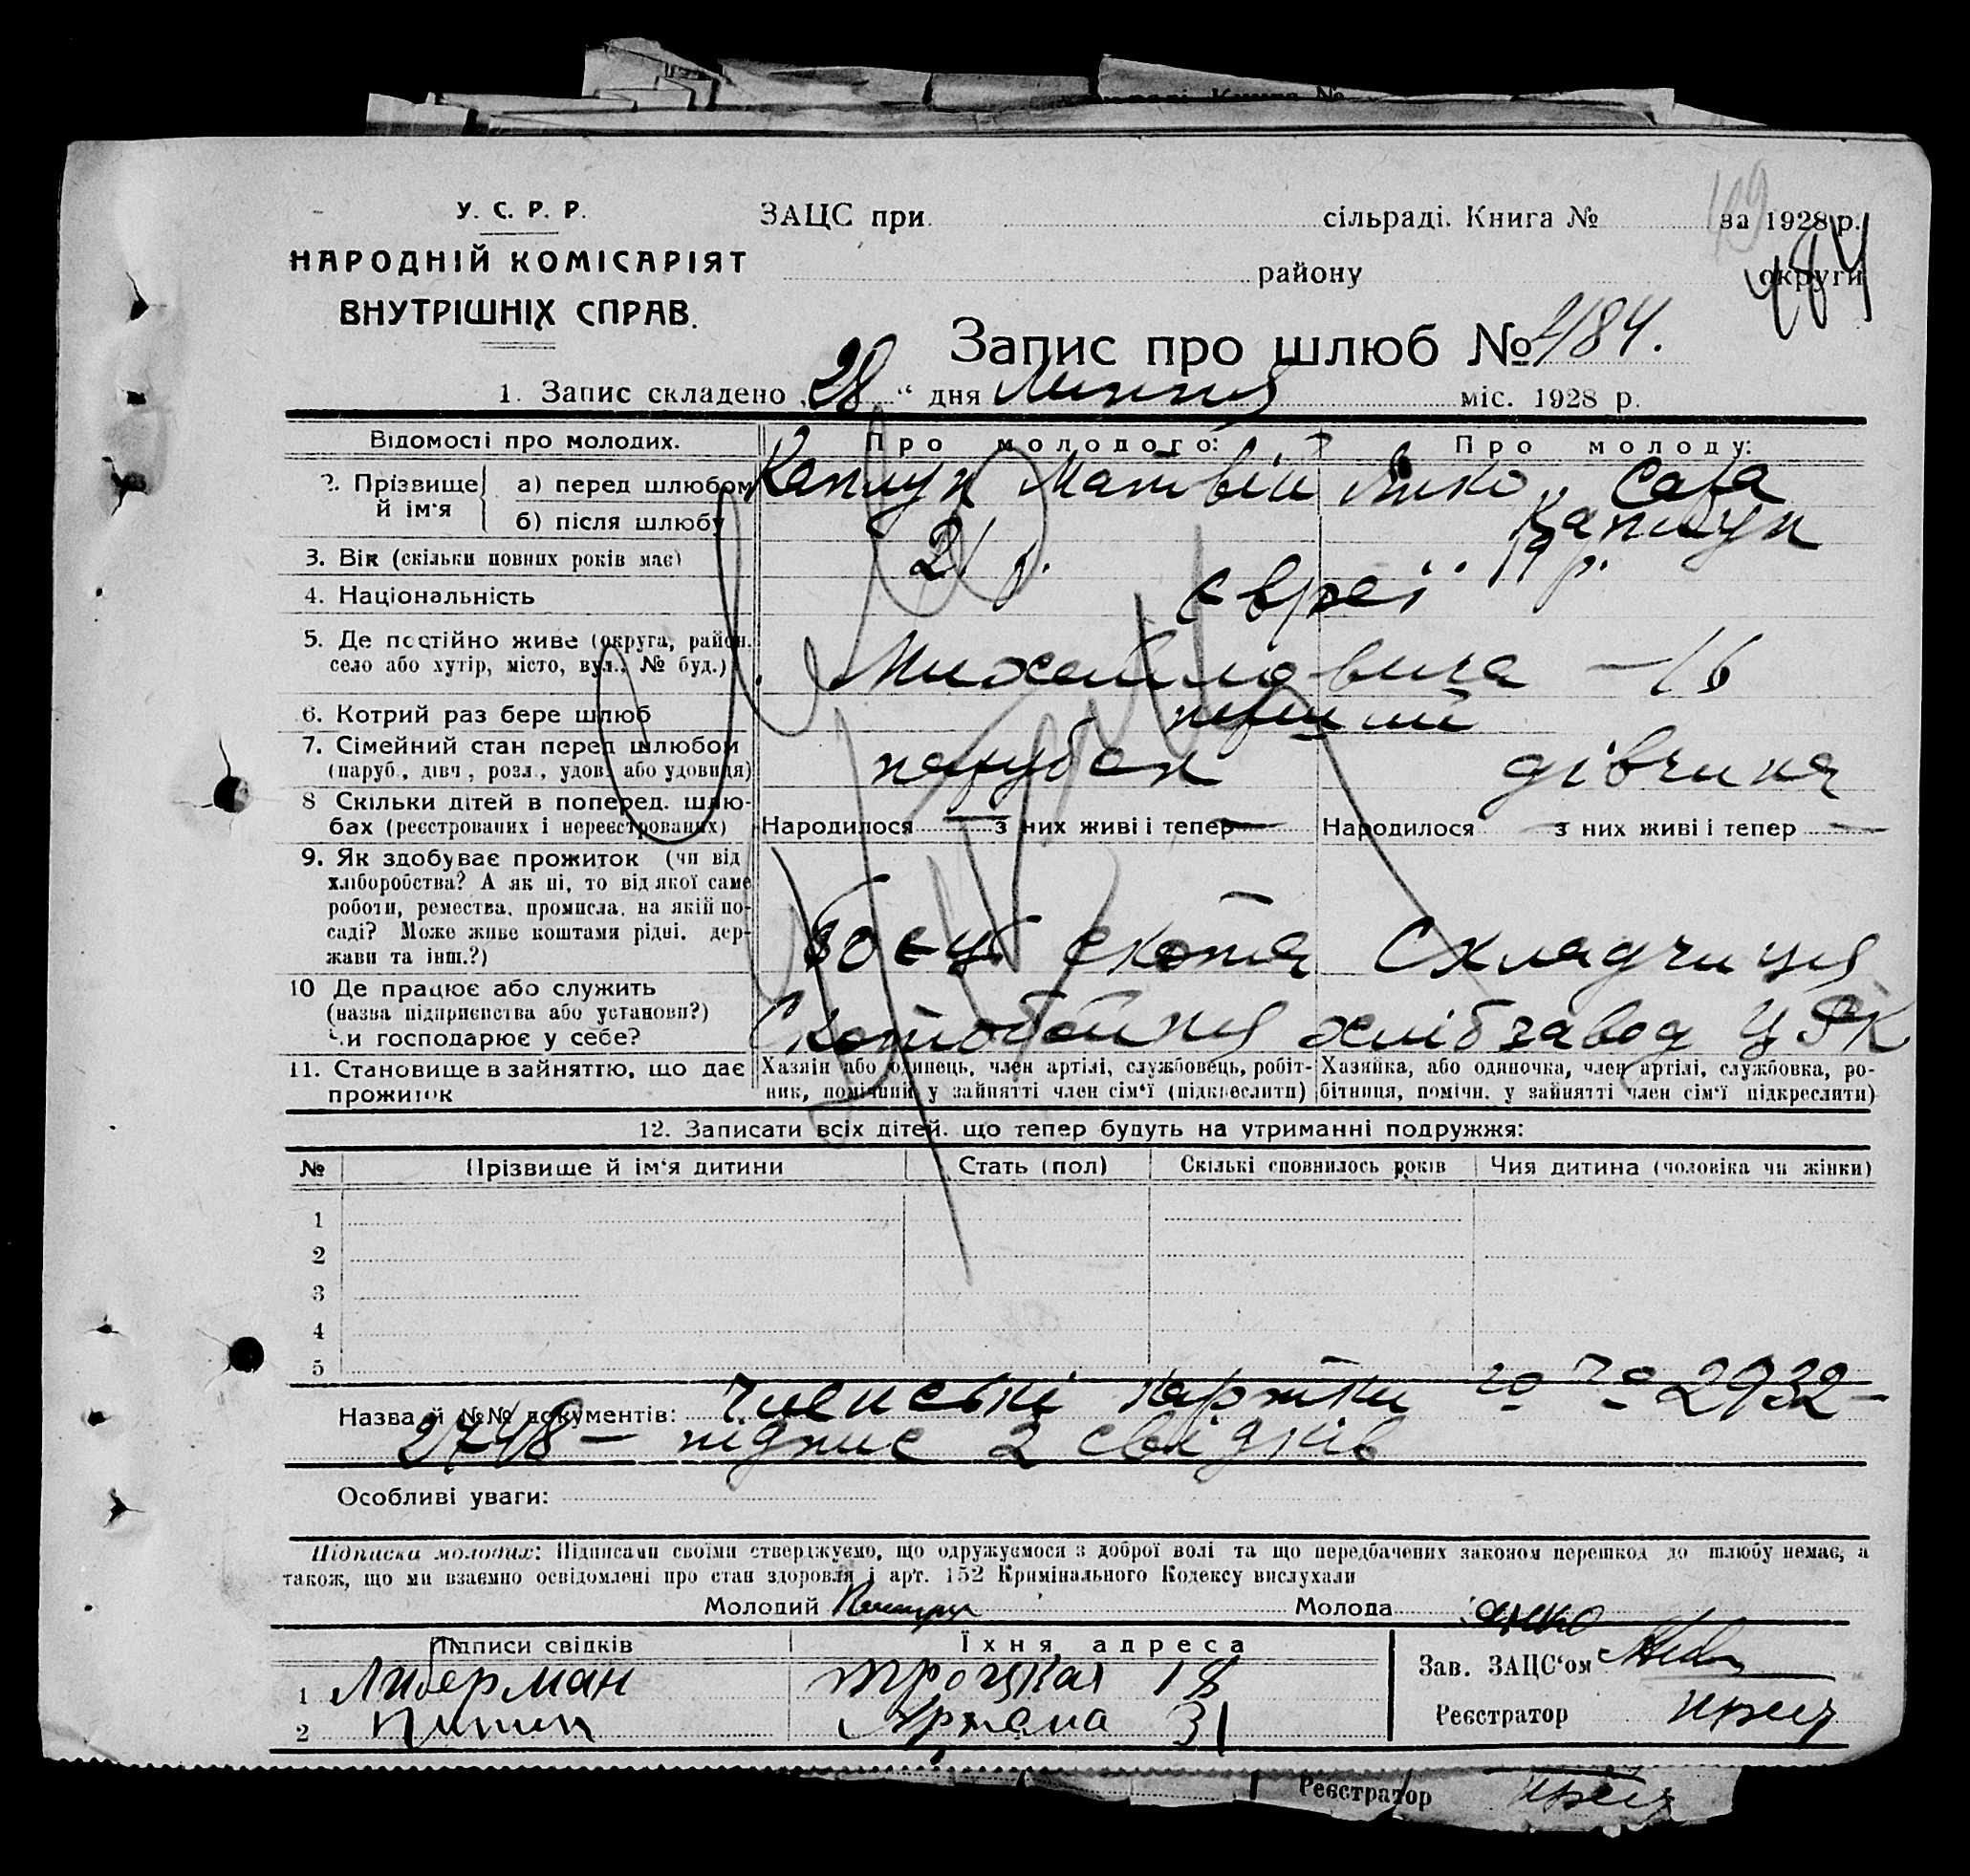 У. С. Р. Р.
НАРОДНІЙ КОМІСАРІЯТ
ВНУТРІШНІХ СПРАВ.
ЗАЦС при сільраді. Книга № за 1928 р.
109
району округи
484
Запис про шлюб № 484.
1. Запис складено „28“ дня Липня міс. 1928 р.
Відомості про молодих. Про молодого: Про молоду:
2. Прізвище й ім'я а) перед шлюбом Каплун Матвій Янко Сара
б) після шлюбу Каплун
3. Вік (скільки повних років має) 21 р. 19 р.
4. Національність євреї
5. Де постійно живе (округа, район,
село або хутір, місто, вул., № буд.) Михайловича — 16
6. Котрий раз бере шлюб перший
7. Сімейний стан перед шлюбом
(паруб., дівч., розл., удов. або удовиця) парубок дівчина
8 Скільки дітей в поперед. шлю-
бах (реєстрованих і нереєстрованих) Народилося — з них живі і тепер — Народилося — з них живі і тепер —
9. Як здобуває прожиток (чи від
хліборобства? А як ні, то від якої саме
роботи, ремества, промисла, на якій по-
саді? Може живе коштами рідні, дер-
жави та інш.?) Боєць скота Складчиця
10 Де працює або служить
(назва підприємства або установи?)
Чи господарює у себе? Скотобойня хлібзавод ЦРК
11. Становище в зайняттю, що дає
прожиток
Хазяїн або одинець, член артілі, службовець, робіт-
ник, помічний у зайнятті член сім'ї (підкреслити)
Хазяйка, або одиночка, член артілі, службовка, ро-
бітниця, помічн. у зайнятті член сім'ї підкреслити)
12. Записати всіх дітей, що тепер будуть на утриманні подружжя:
№ Прізвище й ім'я дитини Стать (пол) Скількі сповнилось років Чия дитина (чоловіка чи жінки)
1
2
3
4
5
Назва й №№ документів: Членські картки 2932 —
2748 — підпис 2 свідків
Особливі уваги:
Підписка молодих: Підписами своїми стверджуємо, що одружуємося з доброї волі та що передбачених законом перешкод до шлюбу немає, а
також, що ми взаємно освідомлені про стан здоровля і арт. 152 Кримінального Кодексу вислухали
Молодий Каплун Молода Янко
Підписи свідків Їхня адреса
Зав. ЗАЦС'ом
1 Либерман Троцкая 18
Реєстратор
2 Артема 31
Реєстратор